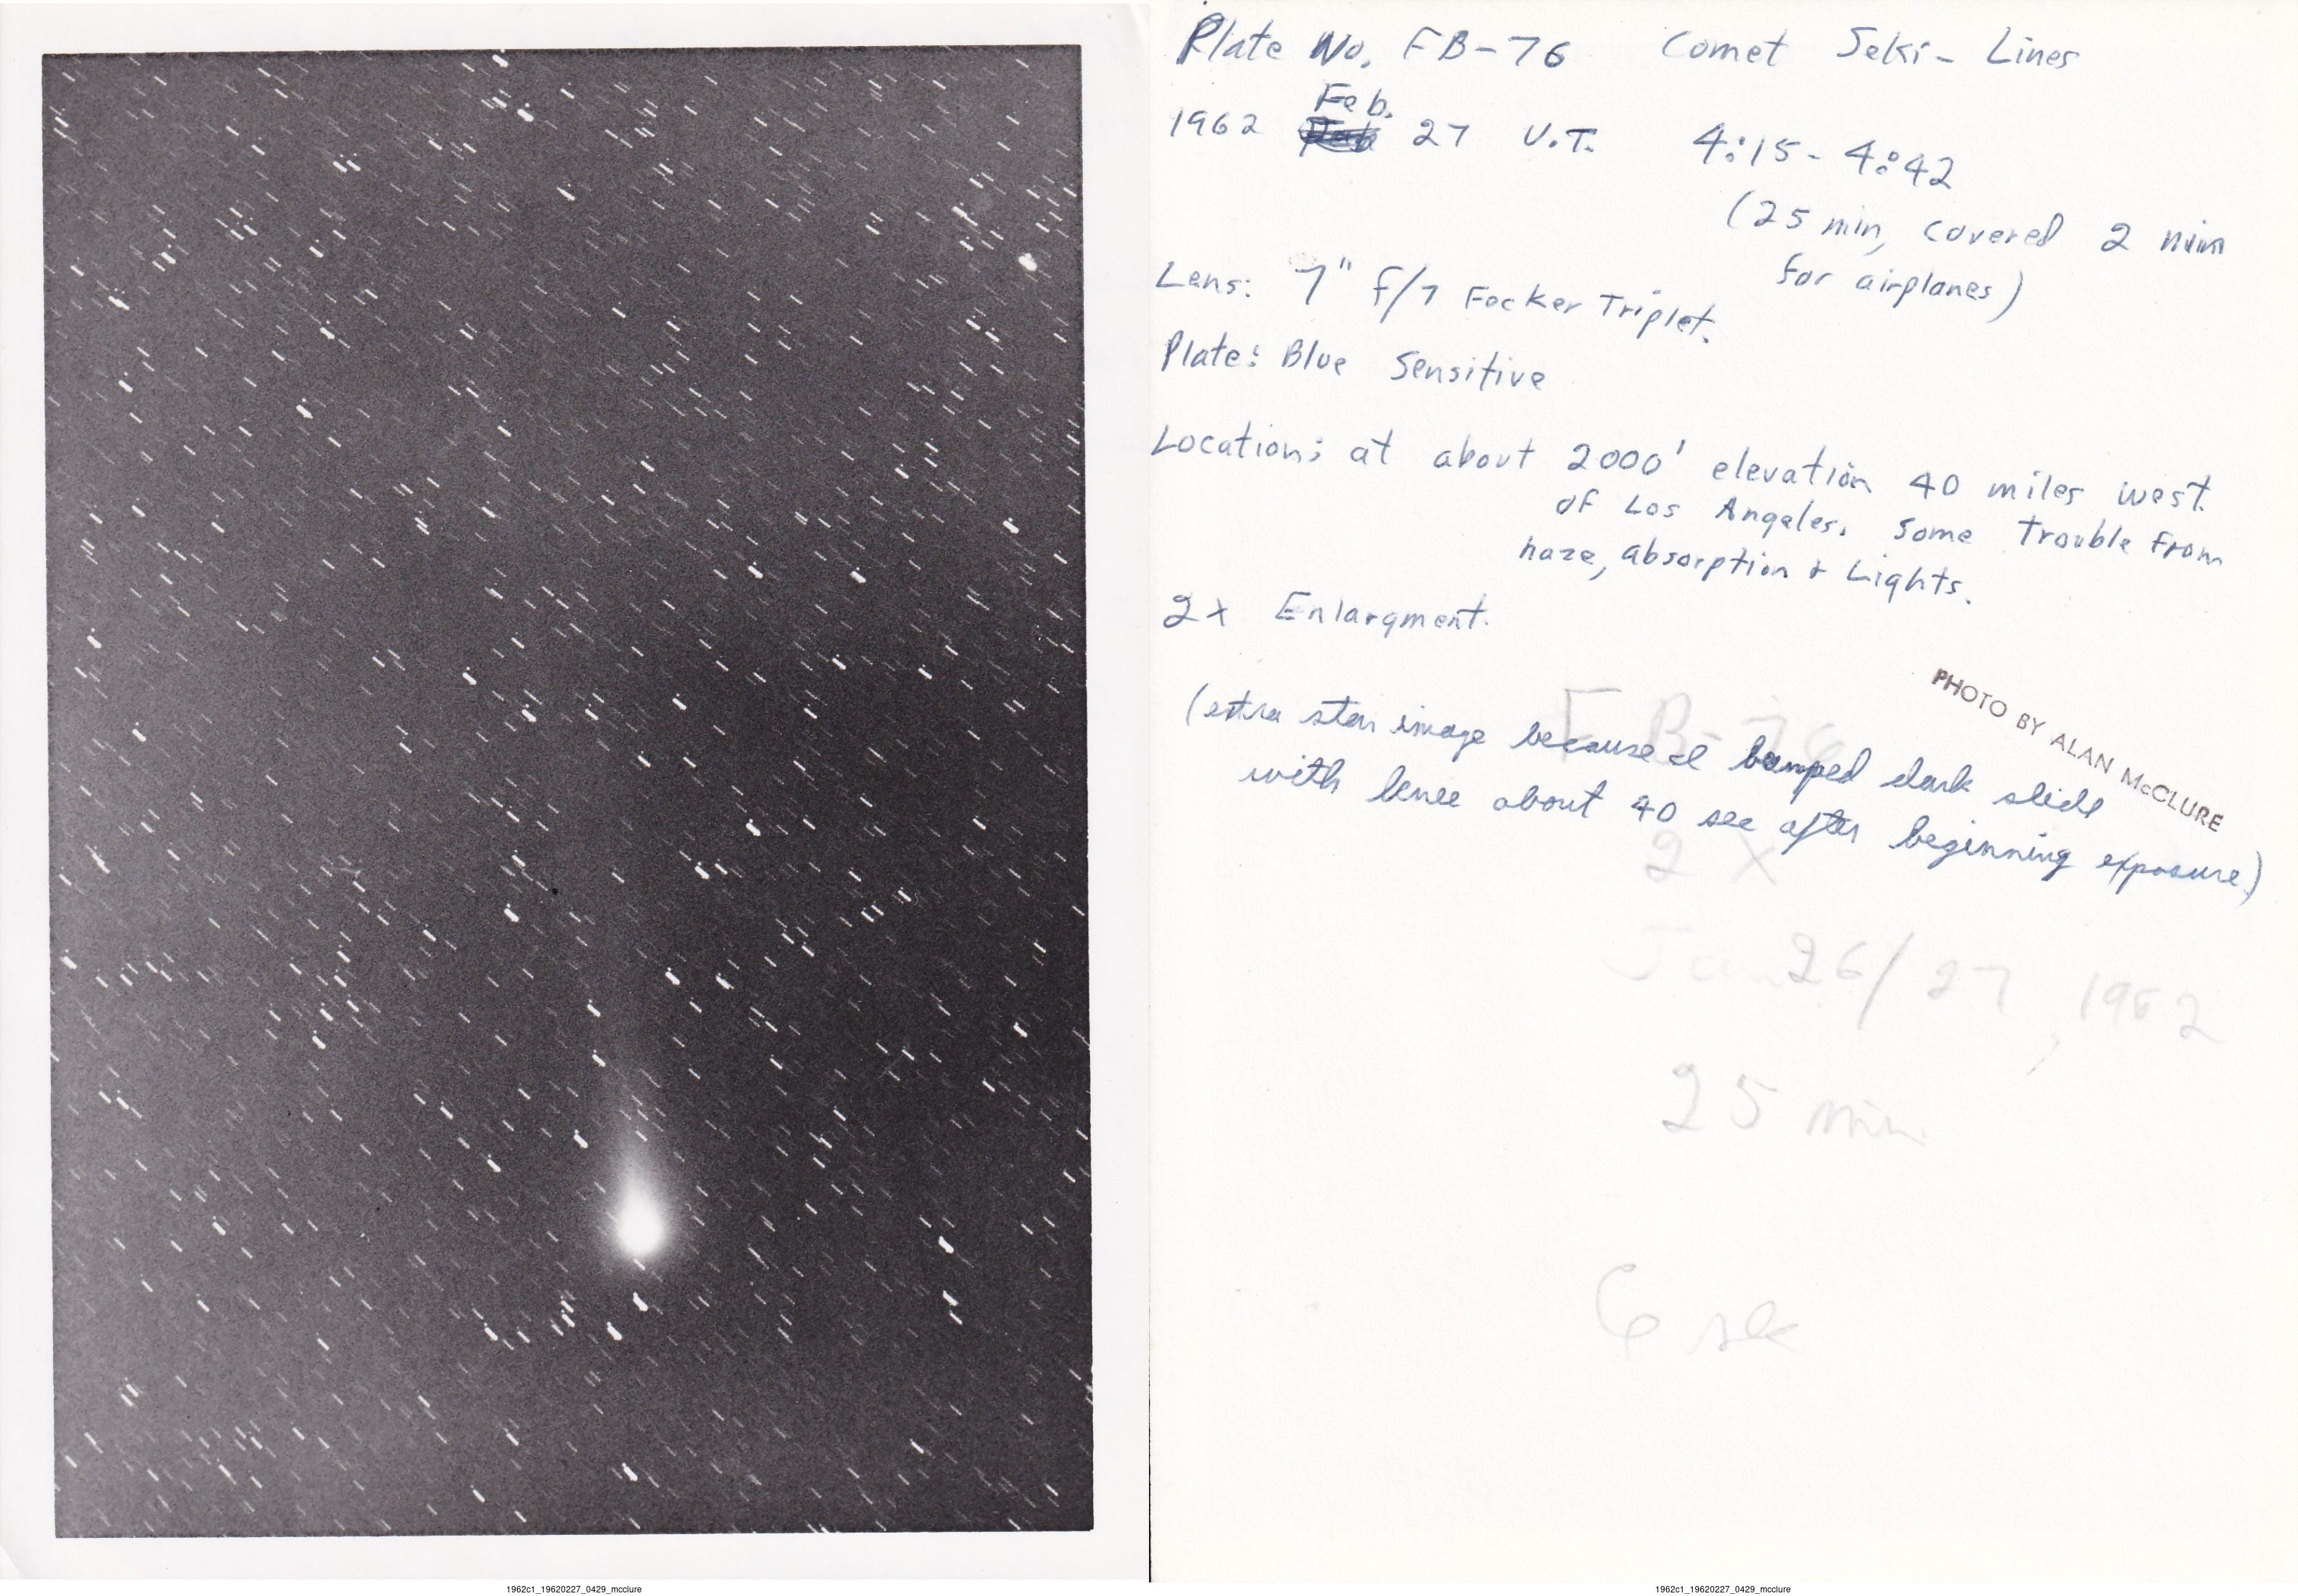 Plate No. FB-76 Comet Seki-Lines
Feb.
1962 27 U.T. 4:15-4:42
(25 min, covered 2 min
for airplanes)
Lens: 7" f/7 Fecker Triplet.
Plate: Blue Sensitive
Location: at about 2000' elevation 40 miles west
of Los Angeles. Some Trouble from
haze, absorption + Lights.
2x Enlargment.
PHOTO BY ALAN McCLURE
FB-76
(extra star image because I bumped dark slide
with knee about 40 sec after beginning exposure)
2X
Jan 26/27, 1962
25 min
6 sec
1962c1_19620227_0429_mcclure
1962c1_19620227_0429_mcclure